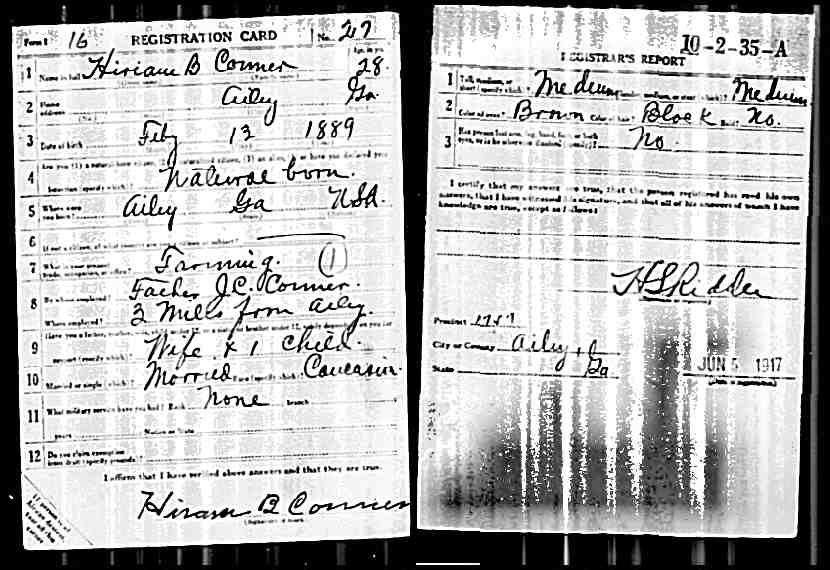 Form 1 16 REGISTRATION CARD No. 27
1 Name in full Hiriam B Conner Age, in yrs. 28
2 Home address Ailey Ga.
3 Date of birth Feby 13 1889
4 Are you (1) a natural-born citizen, (2) a naturalized citizen, (3) an alien, (4) or have you declared your
intention (specify which)? Natural born.
5 Where were you born? Ailey Ga USA.
6 If not a citizen, of what country are you a citizen or subject?
7 What is your present trade, occupation, or office? Farming. 1
8 By whom employed? Father J.C. Conner.
Where employed? 3 Mills from Ailey.
9 Have you a father, mother, wife, child under 12, or a sister or brother under 12, solely dependent on you for
support (specify which)? Wife & 1 child.
10 Married or single (which)? Married Race (specify which)? Caucasian.
11 What military service have you had? Rank None branch
years Nation or State
12 Do you claim exemption from draft (specify grounds)?
I affirm that I have verified above answers and that they are true.
Hiram B Conner
(Signature or mark)
10-2-35-A
REGISTRAR'S REPORT
1 Tall, medium, or short (specify which)? Medium Slender, medium, or stout (which)? Medium
2 Color of eyes? Brown Color of hair? Black Bald? No.
3 Has person lost arm, leg, hand, foot, or both eyes, or is he otherwise disabled (specify)? No.
I certify that my answers are true, that the person registered has read his own
answers, that I have witnessed his signature, and that all of his answers of which I have
knowledge are true, except as follows:
Precinct
City or County Ailey
State Ga
JUN 5 1917
(Date of registration)